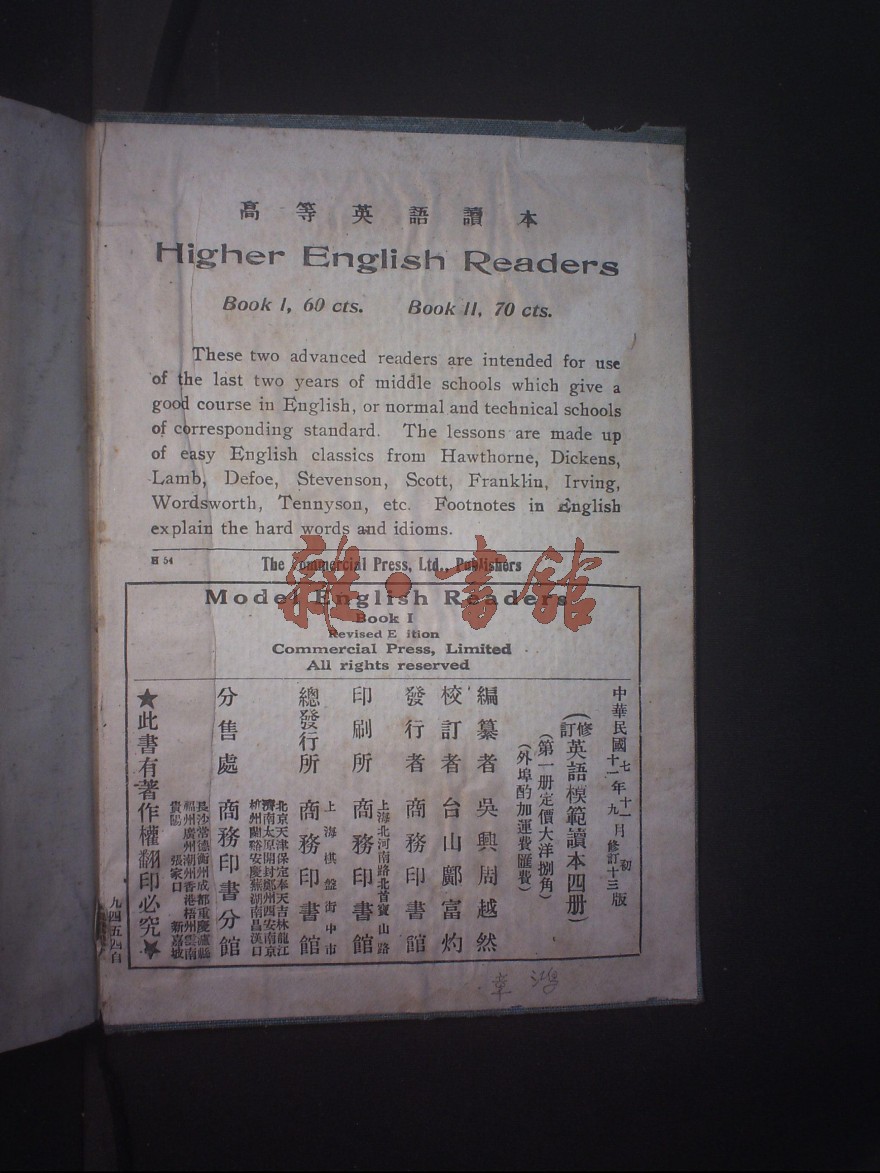 高等英語讀本
Higher English Readers
Book I, 60 cts. Book II, 70 cts.
These two advanced readers are intended for use
of the last two years of middle schools which give a
good course in English, or normal and technical schools
of corresponding standard. The lessons are made up
of easy English classics from Hawthorne, Dickens,
Lamb, Defoe, Stevenson, Scott, Franklin, Irving,
Wordsworth, Tennyson, etc. Footnotes in English
explain the hard words and idioms.
H 54
The Commercial Press, Ltd., Publishers
雜·書館
Model English Readers
Book I
Revised E ition
Commercial Press, Limited
All rights reserved
中華民國七年十一月初版
十一年九月修訂十三版
(修訂英語模範讀本四册)
(第一册定價大洋捌角)
(外埠酌加運費匯費)
編纂者 吳興周越然
校訂者 台山鄺富灼
發行者 商務印書館
印刷所 上海北河南路北首寶山路 商務印書館
總發行所 上海棋盤街中市 商務印書館
分售處 商務印書分館
北京天津保定奉天吉林龍江
濟南太原開封鄭州西安南京
杭州蘭谿安慶蕪湖南昌漢口
長沙常德衡州成都重慶瀘縣
福州廣州潮州香港梧州雲南
貴陽 張家口 新嘉坡
★此書有著作權翻印必究★
九四五四自